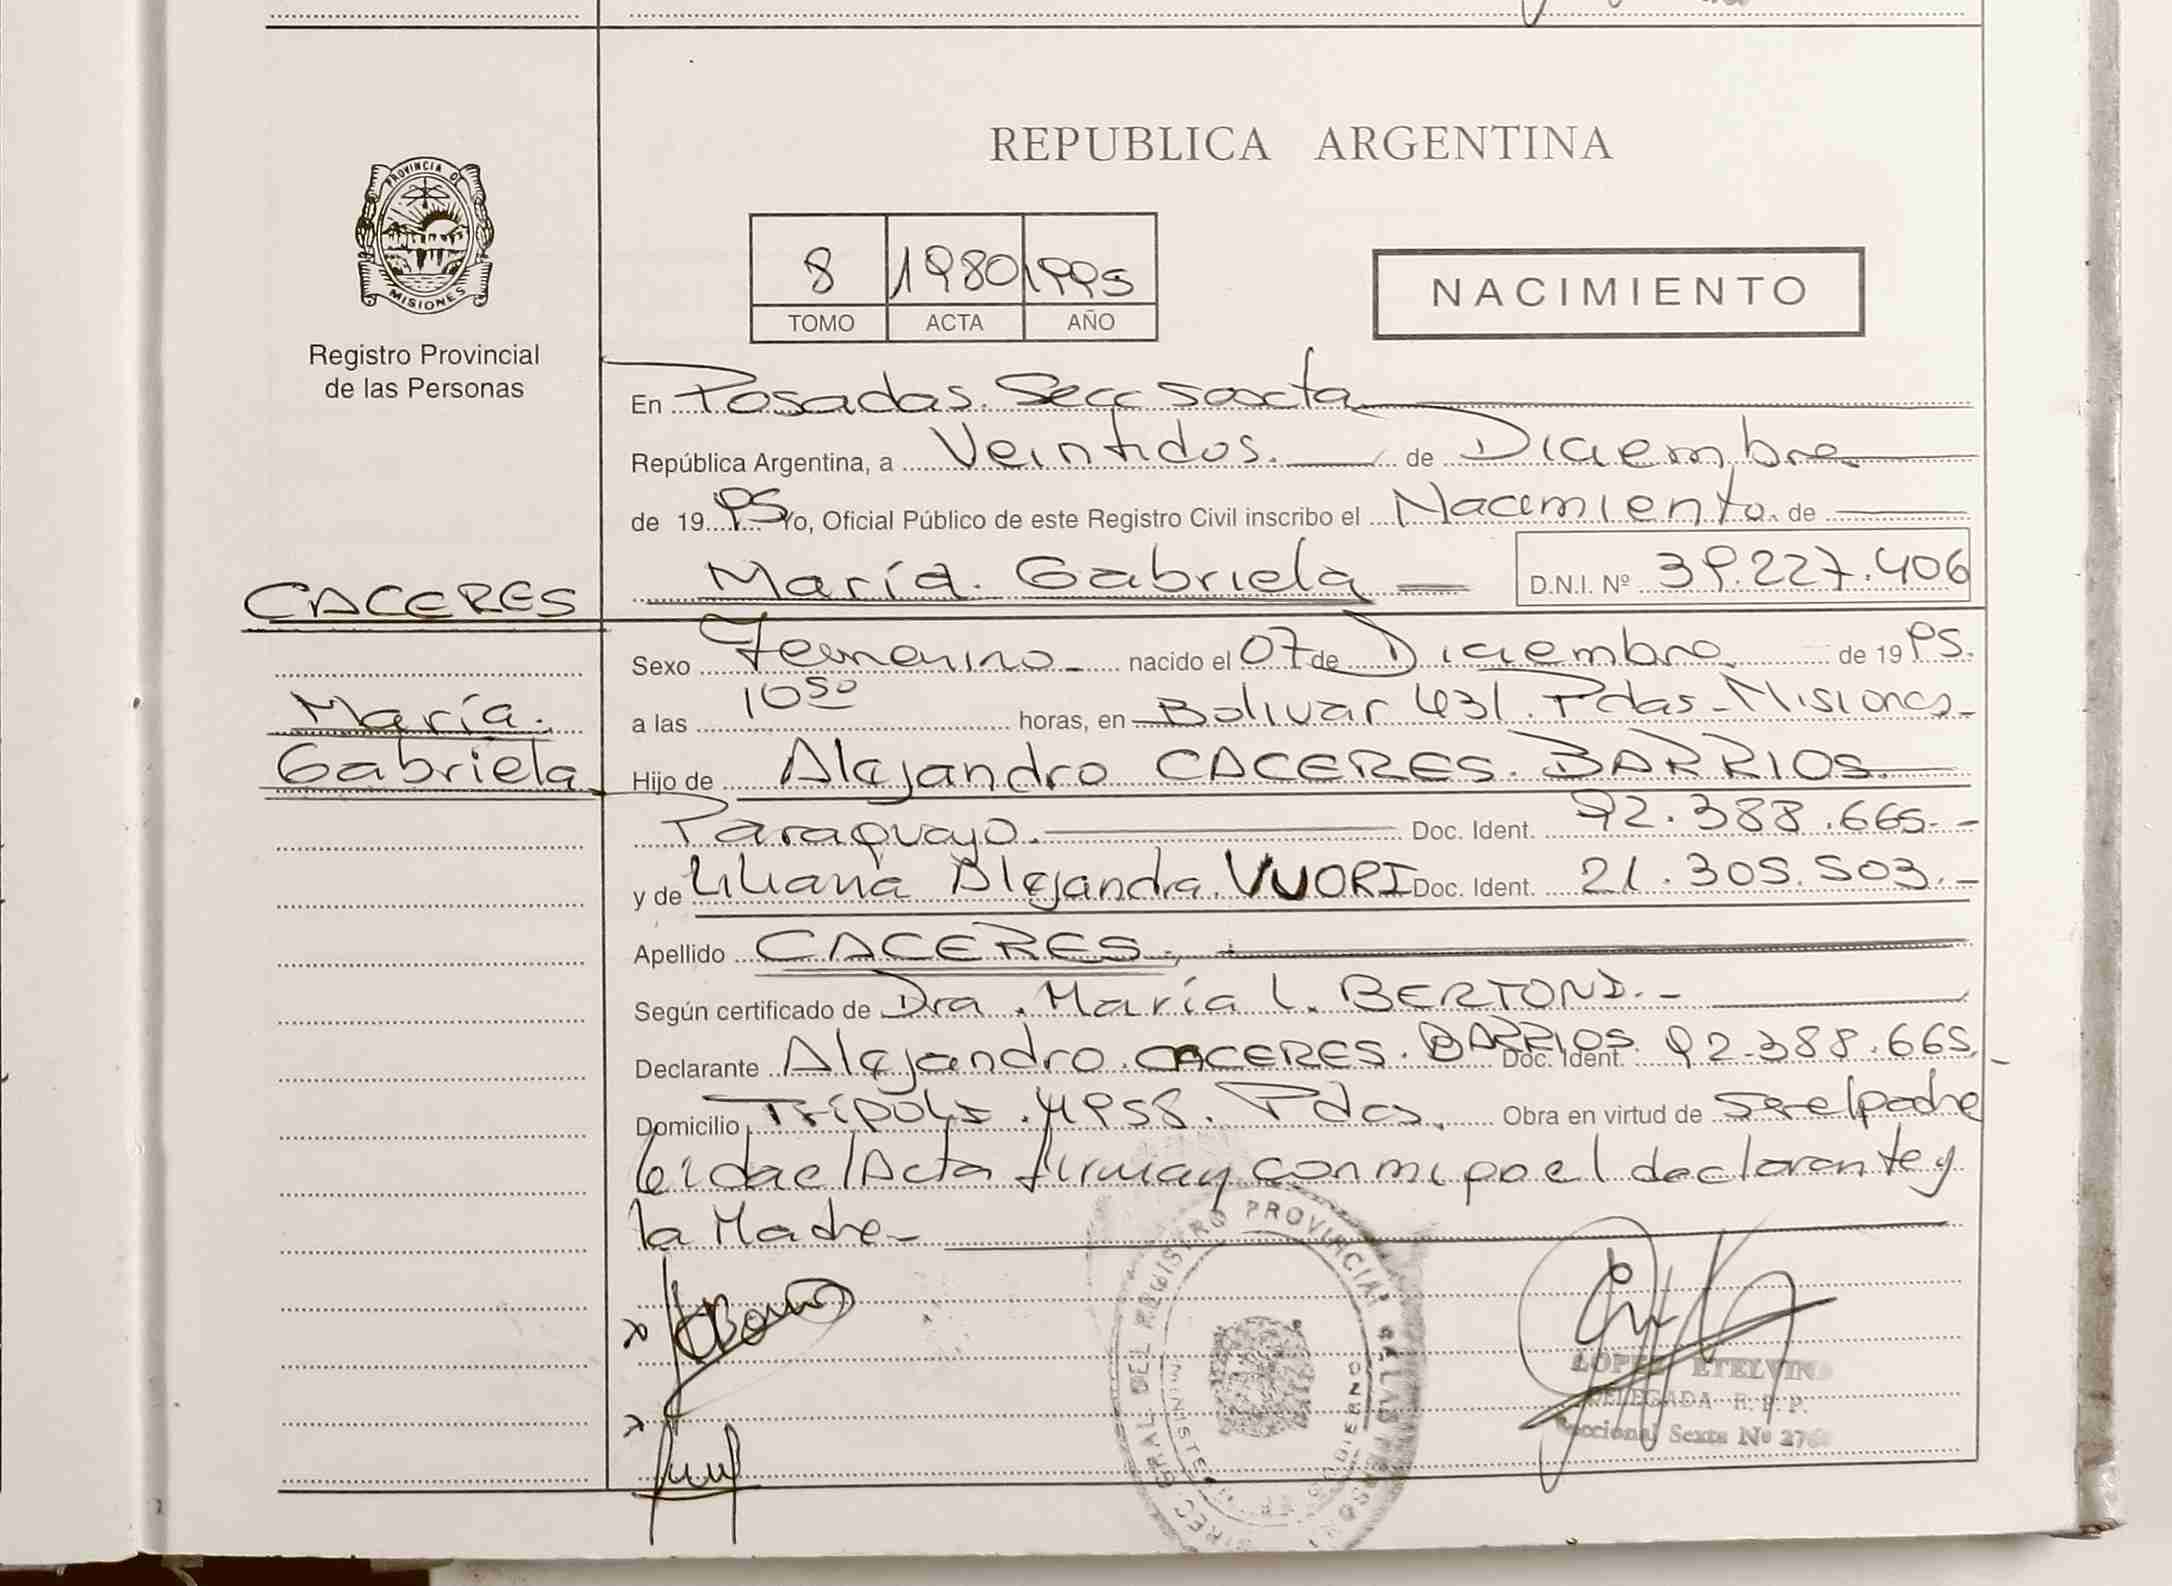 REPUBLICA ARGENTINA
PROVINCIA DE
MISIONES
Registro Provincial
de las Personas
8 1980 1995
TOMO ACTA AÑO
NACIMIENTO
En Posadas. Secc Sexta
República Argentina, a Veintidos. de Diciembre
de 1995 Yo, Oficial Público de este Registro Civil inscribo el Nacimiento. de
María. Gabriela D.N.I. Nº 39.227.406
CACERES
María.
Gabriela
Sexo Femenino nacido el 07 de Diciembre de 1995.
a las 10 50 horas, en Bolivar 431. Pdas - Misiones -
Hijo de Alejandro CACERES. BARRIOS.
Paraguayo. Doc. Ident. 92.388.665. -
y de Liliana Alejandra. VUORI Doc. Ident. 21.305.503. -
Apellido CACERES.
Según certificado de Dra. María L. BERTONI. -
Declarante Alejandro. CACERES. BARRIOS. Doc. Ident. 92.388.665. -
Domicilio Trípolis. 4958. Pdas. Obra en virtud de ser el padre
leida el Acta firman conmigo el declarante y
la Madre -
DIREC. GRAL. DEL REGISTRO PROVINCIAL DE LAS PERSONAS
LOPEZ ETELVINA
DELEGADA R. P. P.
Seccional Sexta Nº